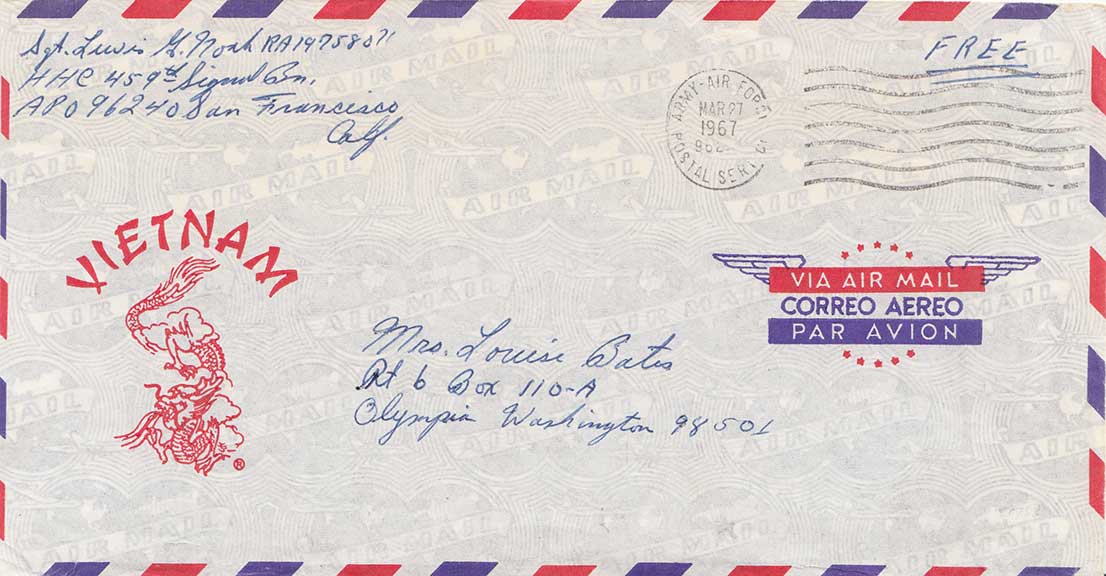 Sgt. Lewis G. Noah RA19758071
HHC 459th Signal Bn.
APO 96240 San Francisco
Calif.
FREE
ARMY-AIR FORCE
MAR 27
1967
POSTAL SERV
VIETNAM
®
VIA AIR MAIL
CORREO AEREO
PAR AVION
Mrs. Louise Bates
Rt 6 Box 110-A
Olympia Washington 98501
AIR MAIL